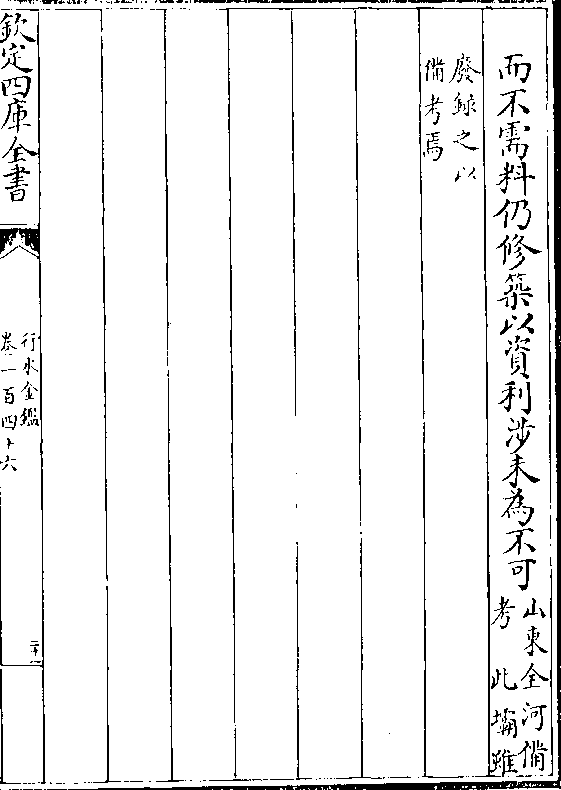 而不需料仍修築以資利涉未為不可
山東全河備
考 此壩雖
廢録之以
備考焉
欽定四庫全書
行水金鑑
卷一百四十六